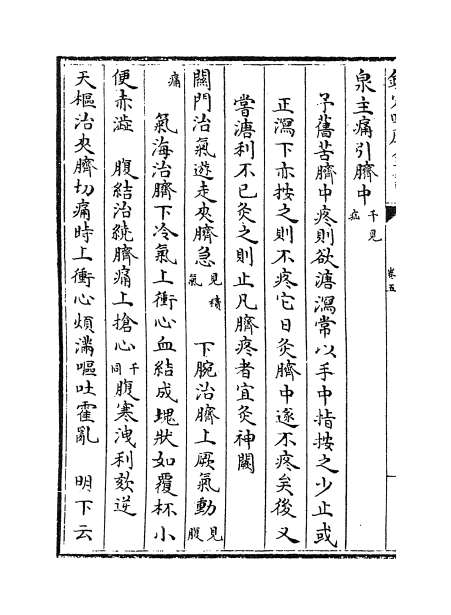 卷五
泉主痛引臍中千見疝
予舊苦臍中疼則欲溏瀉常以手中指按之少止或
正瀉下亦按之則不疼它日灸臍中遂不疼矣後又
嘗溏利不已灸之則止凡臍疼者宜灸神闕
關門治氣遊走夾臍急見積氣 下腕治臍上厥氣動見腹
痛 氣海治臍下冷氣上衝心血結成塊狀如覆杯小
便赤澁 腹結治繞臍痛上搶心千同腹寒洩利欬逆
天樞治夾臍切痛時上衝心煩滿嘔吐霍亂 明下云